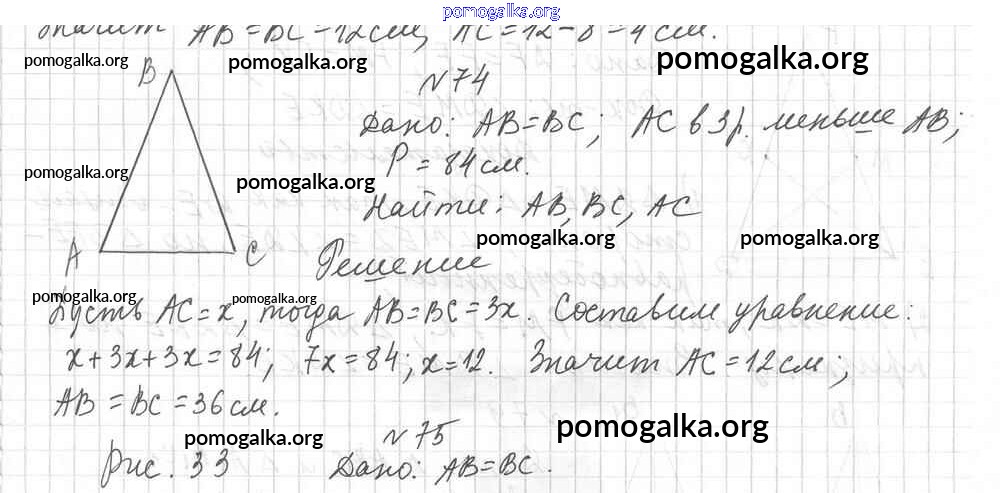 pomogalka.org
Значит AB=BC=12см, AC=12-8=4см.
pomogalka.org pomogalka.org pomogalka.org
B
№74
Дано: AB=BC; AC в 3 р. меньше AB;
P=84см.
pomogalka.org pomogalka.org
Найти: AB, BC, AC
pomogalka.org pomogalka.org
A C Решение
pomogalka.org pomogalka.org
Пусть AC=x, тогда AB=BC=3x. Составим уравнение:
x+3x+3x=84; 7x=84; x=12. Значит AC=12см;
AB=BC=36см.
pomogalka.org pomogalka.org
№75
рис. 33 Дано: AB=BC.